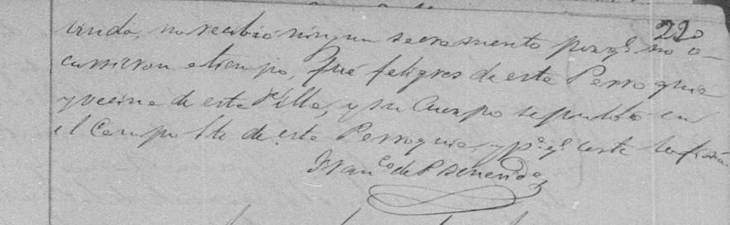 220
viuda, no recibió ningun sacramento porqe. no o-
currieron atiempo, Fué feligres de esta Parroquia
y vecina de esta Villa, y su Cuerpo sepultado en
el Campo Sto de esta Parroquia, y pa. qe. conste lo firmo.
Franco. de P.